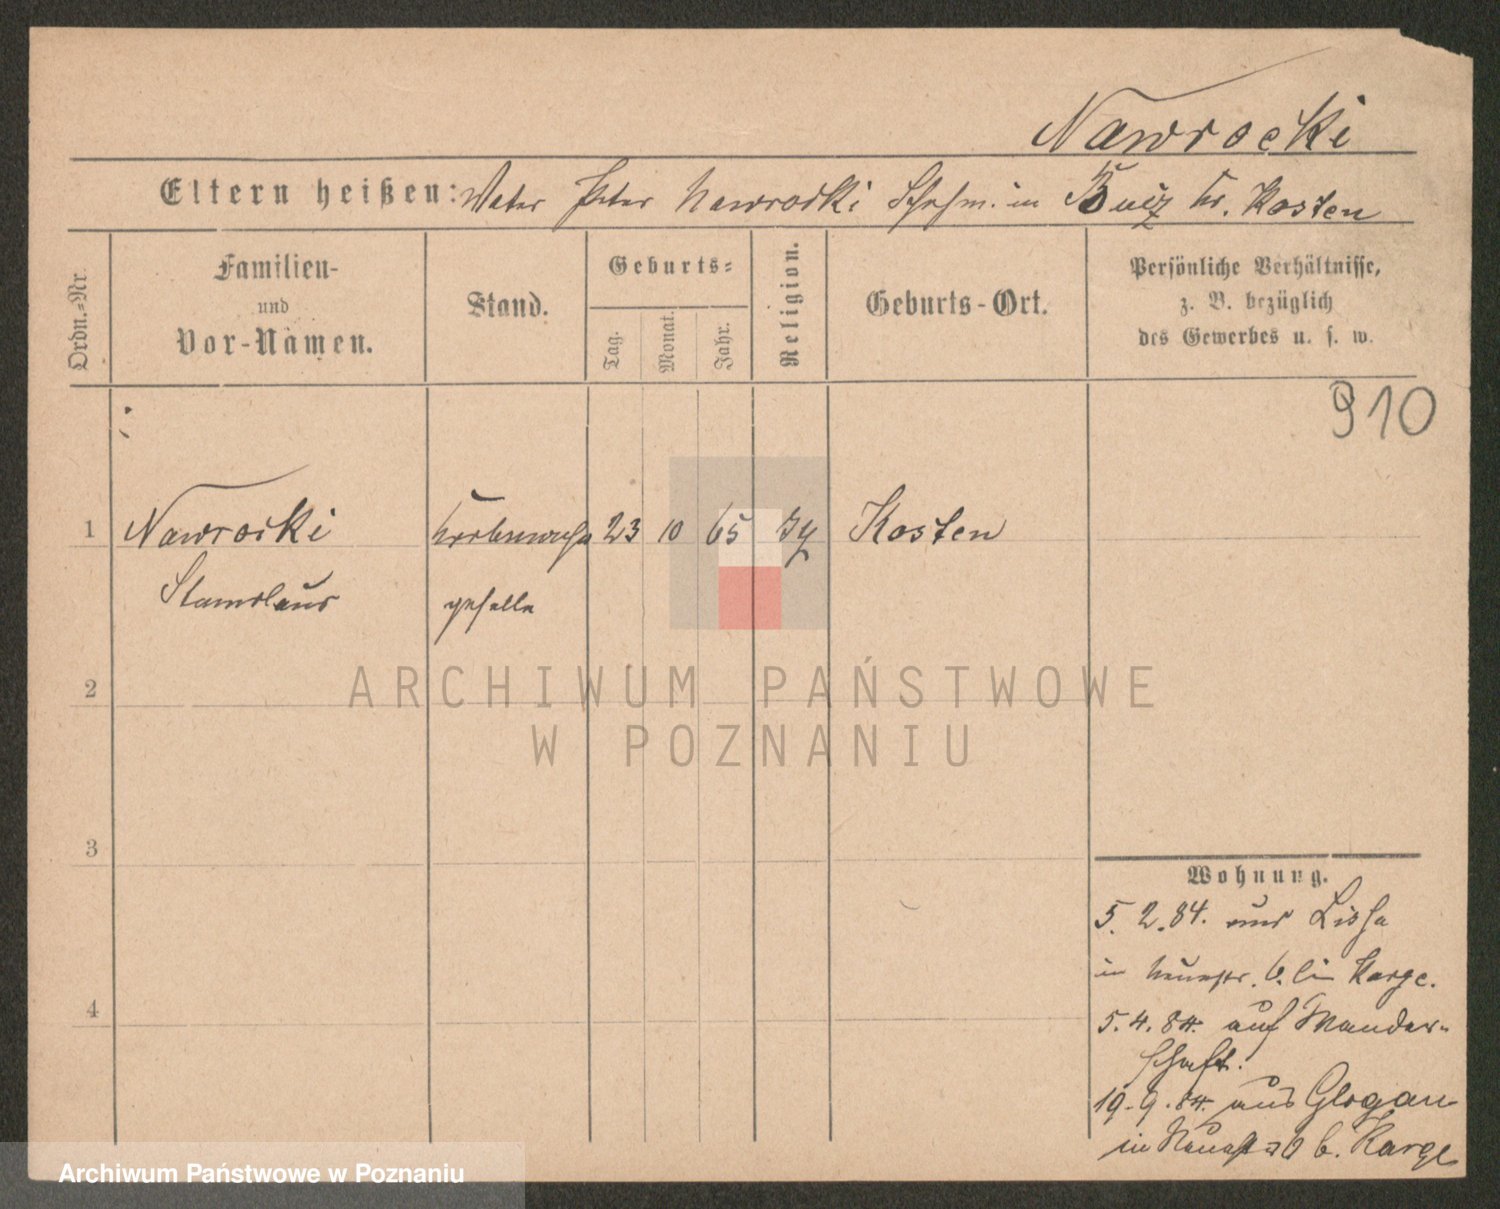 Nawrocki
Eltern heißen: Vater Peter Nawrocki Schuhm. in Kr. Kosten
Ordn.-Nr.
Familien-
und
Vor-Namen.
Stand.
Geburts-
Tag.
Monat.
Jahr.
Religion.
Geburts-Ort.
Persönliche Verhältnisse,
z. B. bezüglich
des Gewerbes u. s. w.
910
1 Nawrocki 23 10 65 Kosten
Stanislaus geselle
2
3
4
Wohnung.
5. 2. 84. aus Lissa
in 6. bei Karge.
5. 4. 84. auf Wander-
schaft.
19. 9. 84. aus Glogau
in b. Karge
ARCHIWUM PAŃSTWOWE
W POZNANIU
Archiwum Państwowe w Poznaniu